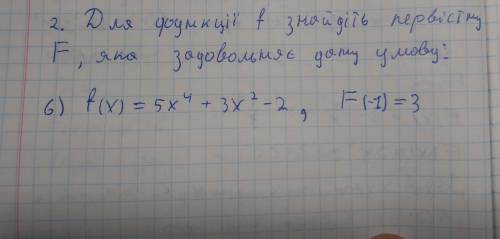 2. Для функції f знайдіть первісну
F, яка задовольняє дану умову:
б) f(x) = 5x⁴ + 3x² - 2, F(-1) = 3